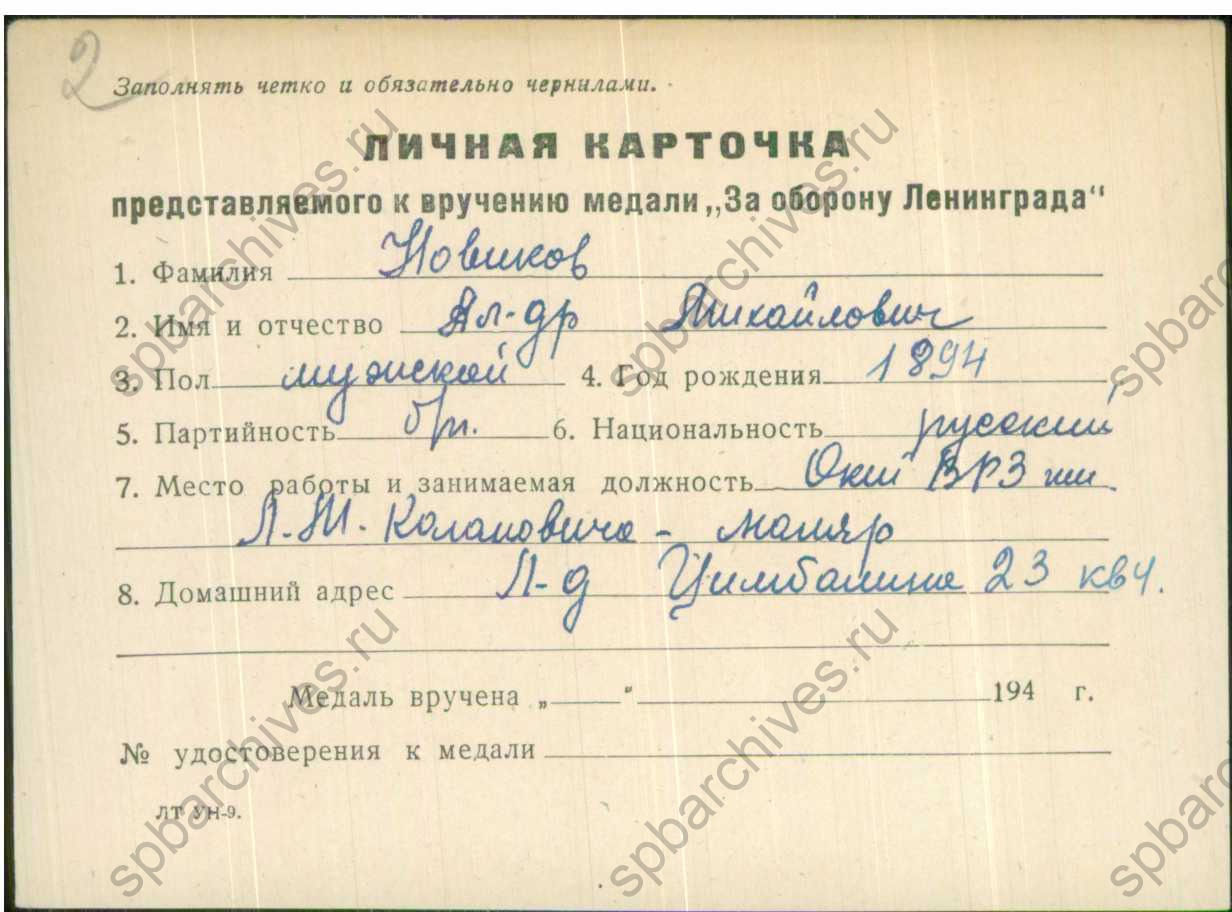 2
Заполнять четко и обязательно чернилами.
ЛИЧНАЯ КАРТОЧКА
представляемого к вручению медали „За оборону Ленинграда“
1. Фамилия Новиков
2. Имя и отчество Ал-др Михайлович
3. Пол мужской 4. Год рождения 1894
5. Партийность б/п. 6. Национальность русский
7. Место работы и занимаемая должность ВРЗ им.
Л.М. Кагановича - маляр
8. Домашний адрес Л-д Цимбалина 23 кв 4.
Медаль вручена „ “ 194 г.
№ удостоверения к медали
ЛТ УН-9.
spbarchives.ru
spbarchives.ru
spbarchives.ru
spbarchives.ru